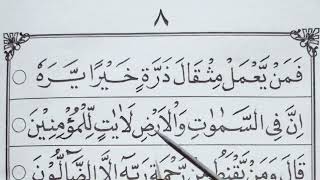 ٨
فَمَنْ يَّعْمَلْ مِثْقَالَ ذَرَّةٍ خَيْرًا يَّرَهٗ
اِنَّ فِى السَّمٰوٰتِ وَالْاَرْضِ لَاٰيٰتٍ لِّلْمُؤْمِنِيْنَ
قَالَ وَمَنْ يَّقْنَطُ مِنْ رَّحْمَةِ رَبِّهٖ اِلَّا الضَّآلُّوْنَ